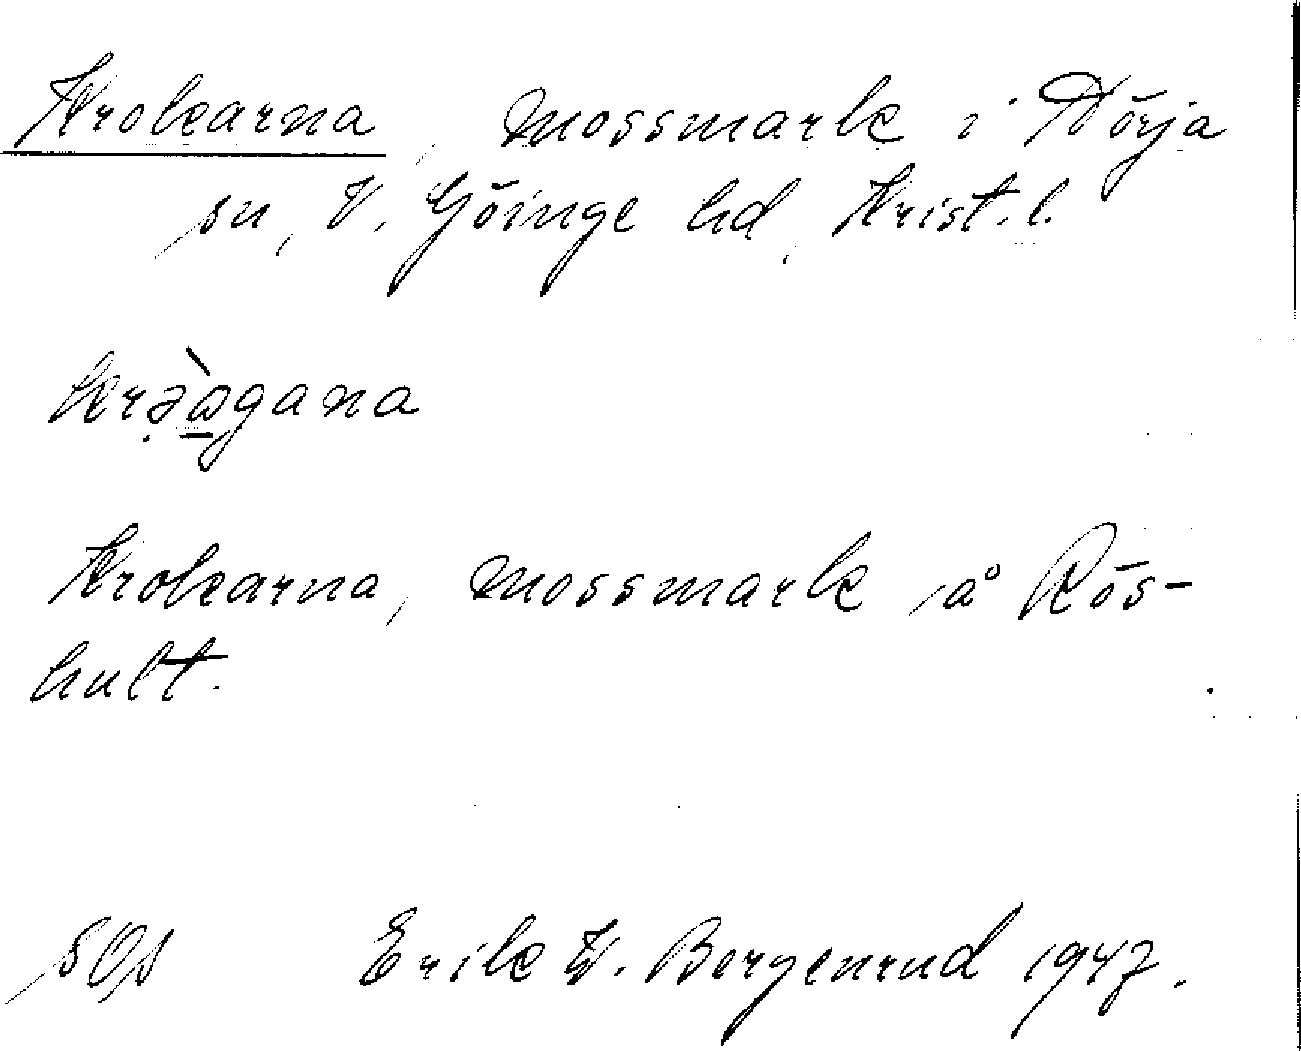 Krokarna, mossmark i Nörja
sn, V. Göinge hd, Krist. l.
krə̣ὰ̱gana
Krokarna, mossmark å Rös-
hult.
Erik W. Bergenrud 1947.